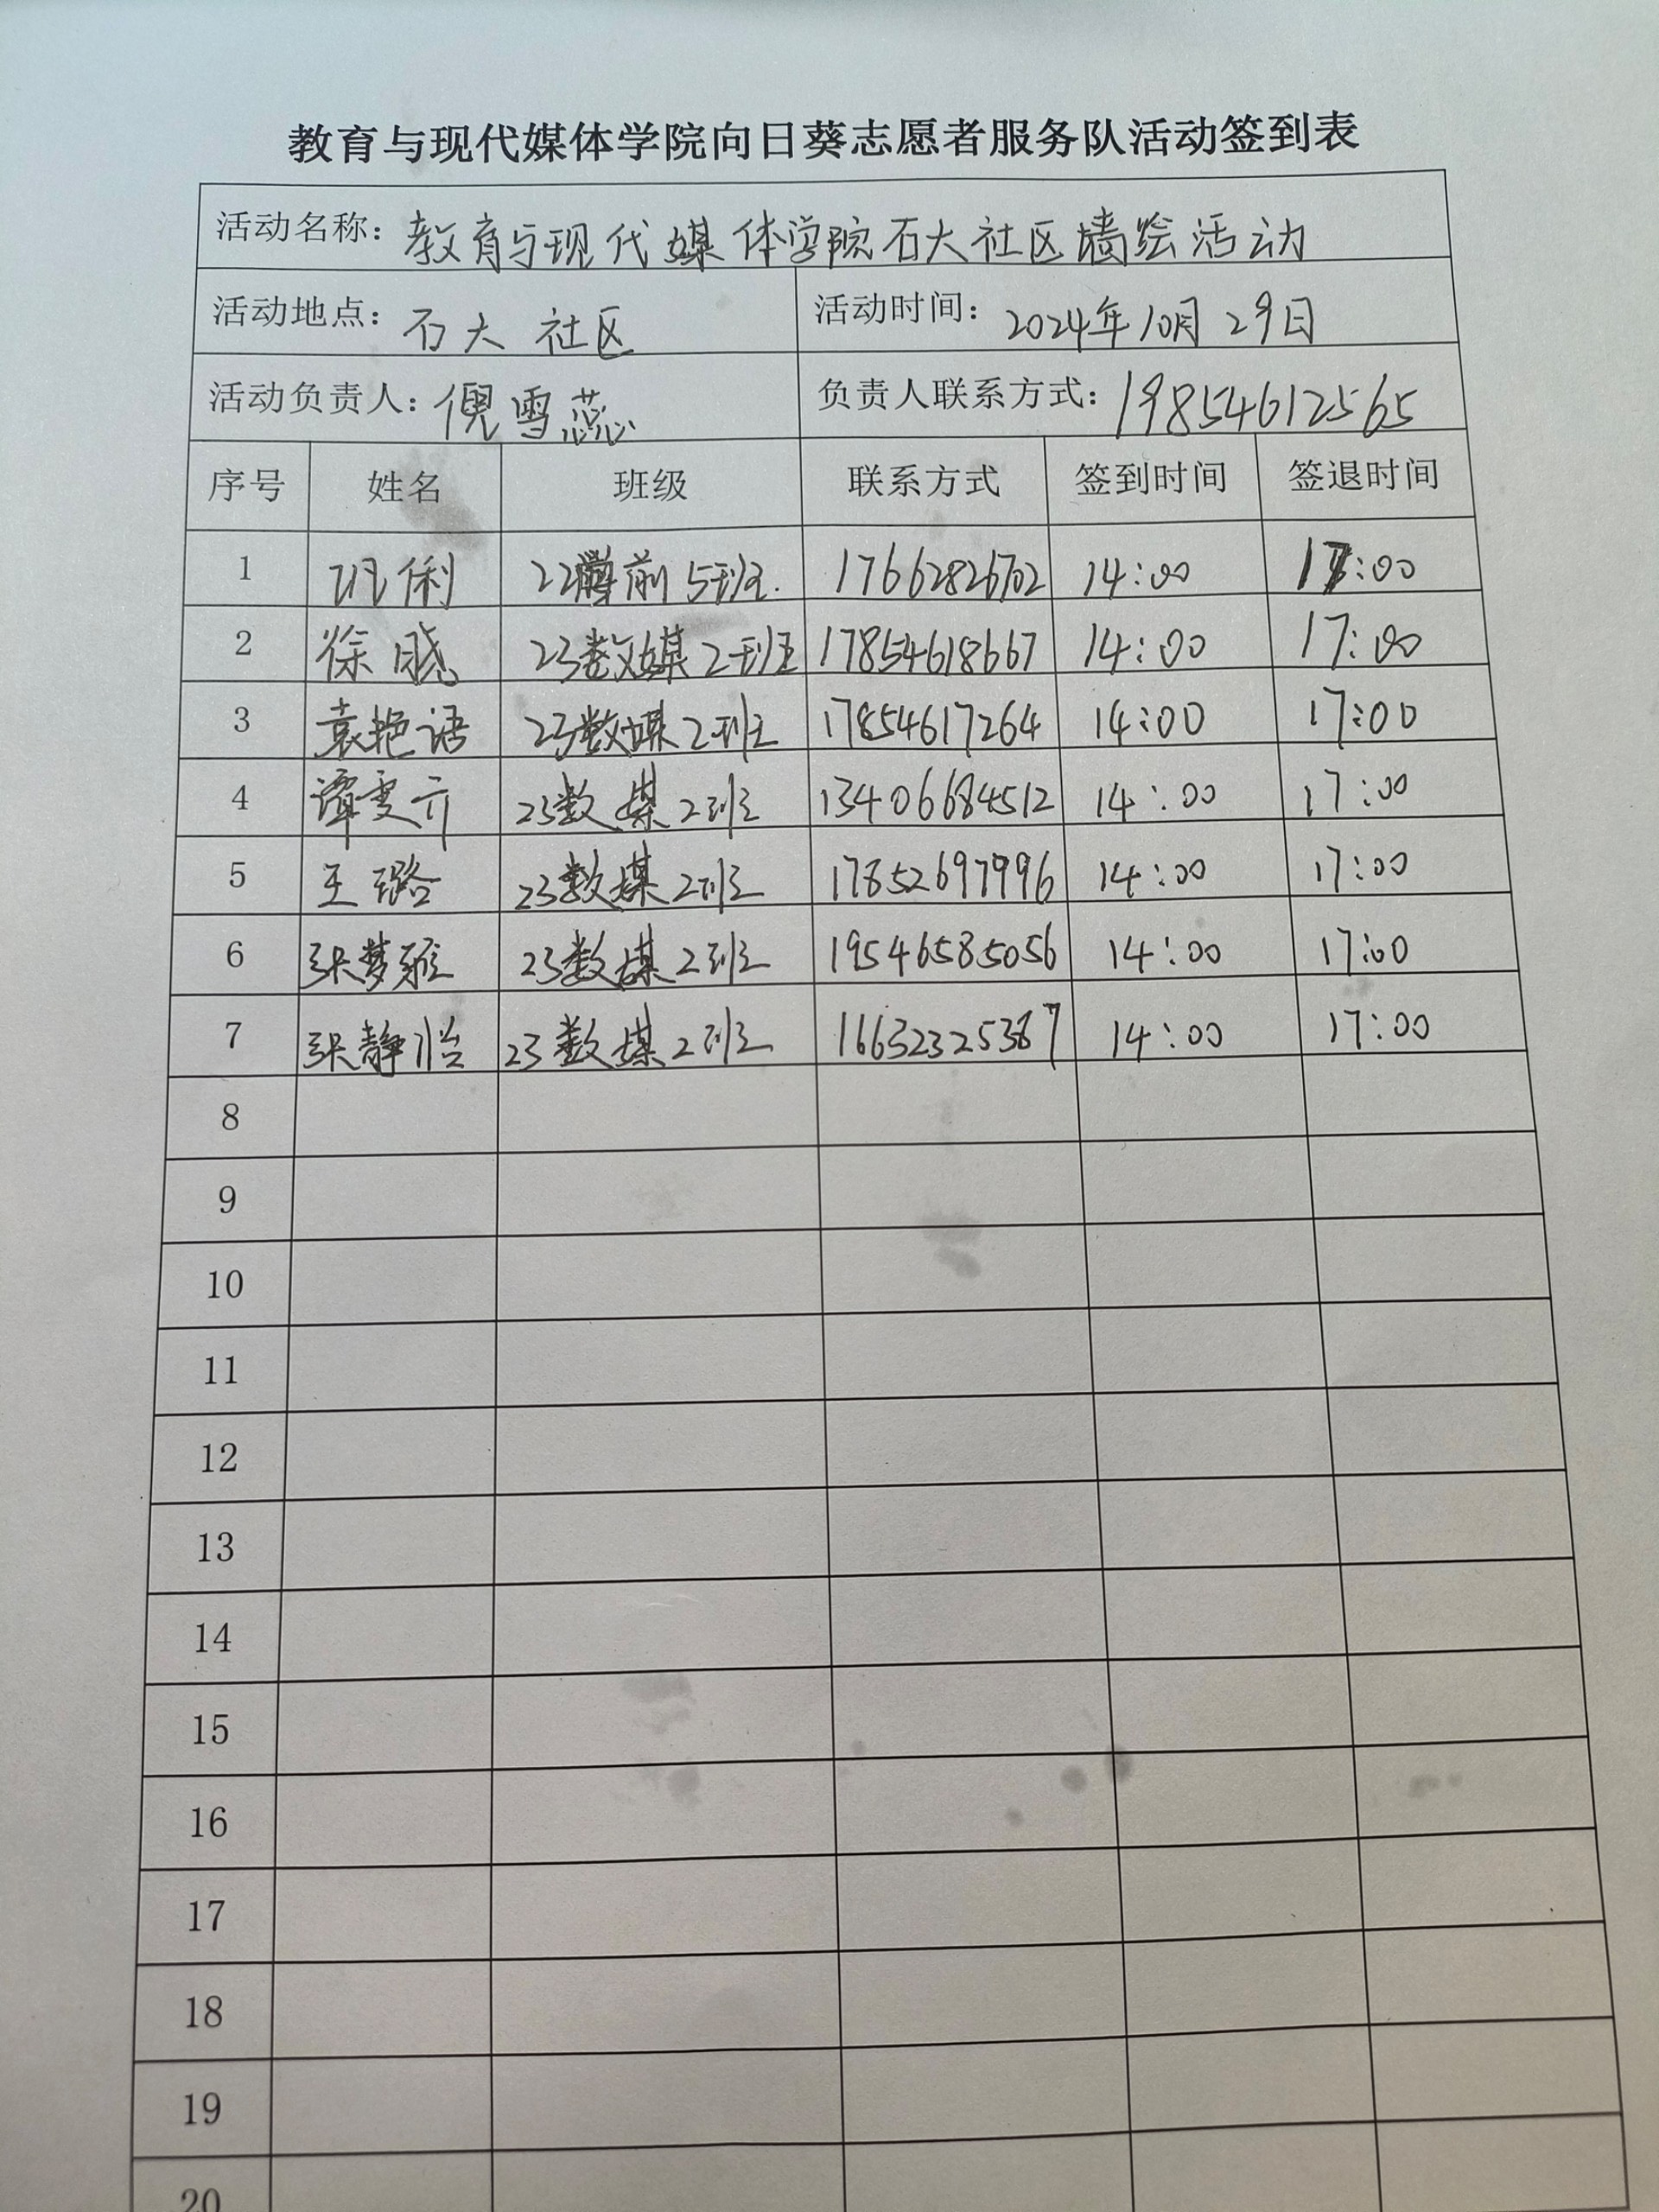 教育与现代媒体学院向日葵志愿者服务队活动签到表
活动名称: 教育与现代媒体学院石大社区墙绘活动
活动地点: 石大社区 活动时间: 2024年10月29日
活动负责人: 倪雪蕊 负责人联系方式: 19854612565
序号 姓名 班级 联系方式 签到时间 签退时间
1 俐 22学前5班. 17662826702 14:00 17:00
2 徐晓 23数媒2班 17854618667 14:00 17:00
3 袁艳语 23数媒2班 17854617264 14:00 17:00
4 谭雯亓 23数媒2班 13406684512 14:00 17:00
5 王璐 23数媒2班 17852697996 14:00 17:00
6 张梦雅 23数媒2班 19546585056 14:00 17:00
7 张静怡 23数媒2班 16632325387 14:00 17:00
8
9
10
11
12
13
14
15
16
17
18
19
20